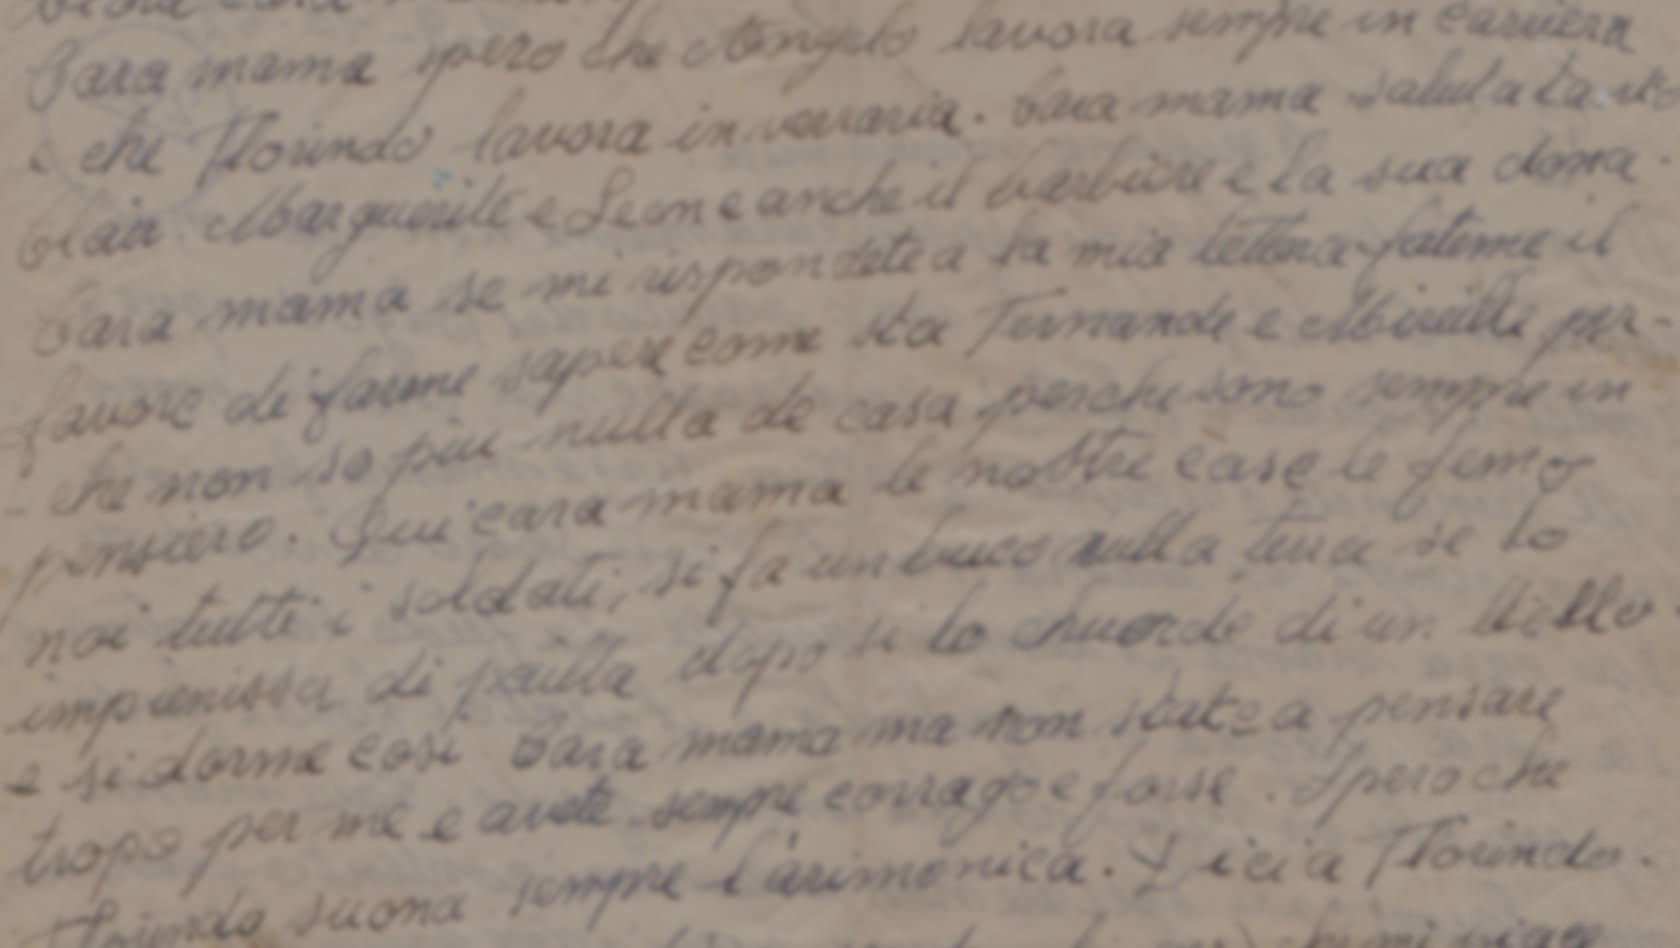 Cara mama spero che Angelo lavora sempre in carriera
e che Florindo lavora in verraria. Cara mama saluta
Clair Marguerite e Leone anche il barbiere e la sua dona.
Cara mama se mi rispondete a la mia lettera fateme il
favore di farme sapere come sta Fernande e Mireille per-
- che non so piu nulla de casa, perche sono sempre in
pensiero. Qui cara mama le nostre case le femo
noi tutti i soldati, si fa un buco nulla terra se lo
impienissa di pailla dopo si lo chuorde di un
e si dorme cosi Cara mama ma non state a pensare
tropo per me e avete sempre corrago e forse. Spero che
Florindo suona sempre l'arimonica. Dici a Florindo.